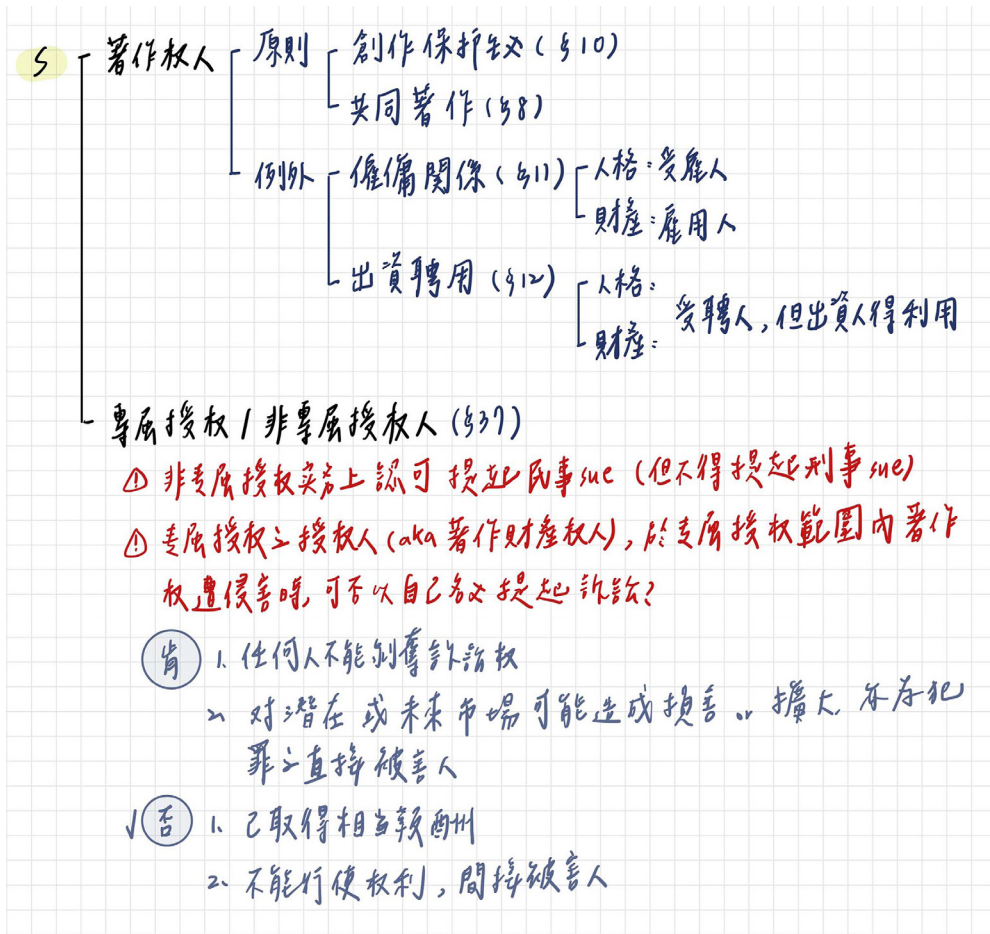 S 著作权人 原則 創作保护主义(§10)
共同著作(§8)
例外 僱傭關係(§11) 人格:受雇人
財產:雇用人
出資聘用(§12) 人格:
財產: 受聘人,但出資人得利用
專屬授权/非專屬授权人(§37)
⚠ 非专属授权实务上認可提起民事sue(但不得提起刑事sue)
⚠ 专属授权之授权人(aka著作財產权人),於专属授权範圍內著作
权遭侵害時,可否以自己名义提起訴訟?
肯 1. 任何人不能剝奪訴訟权
2. 对潛在或未來市場可能造成損害 ∴ 擴大,亦為犯
罪之直接被害人
√ 否 1. 已取得相当額酬
2. 不能行使权利,間接被害人